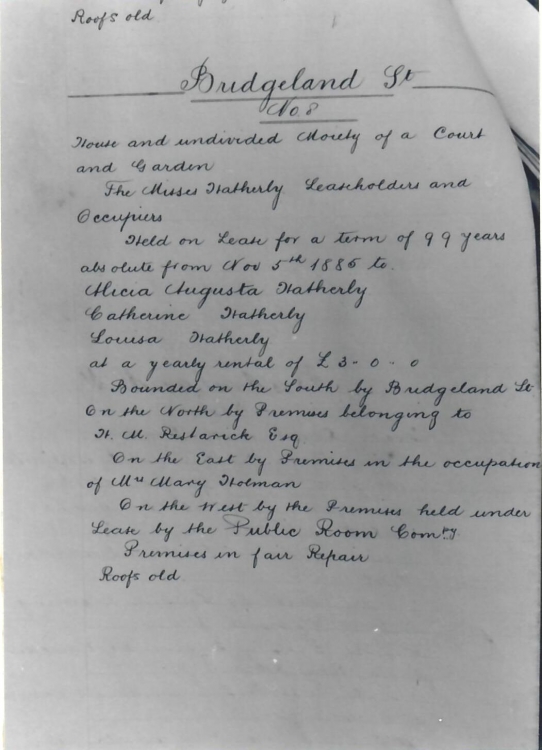 Roofs old
Bridgeland St
No. 8
House and undivided Moiety of a Court
and Garden
The Misses Hatherly Leaseholders and
Occupiers
Held on Lease for a term of 99 years
absolute from Nov 5th 1886 to.
Alicia Augusta Hatherly
Catherine Hatherly
Louisa Hatherly
at a yearly rental of £ 3 - 0 - 0
Bounded on the South by Bridgeland St
On the North by Premises belonging to
H. M. Restarick Esq.
On the East by Premises in the occupation
of Mrs Mary Holman
On the West by the Premises held under
Lease by the Public Room Compy
Premises in fair Repair
Roofs old